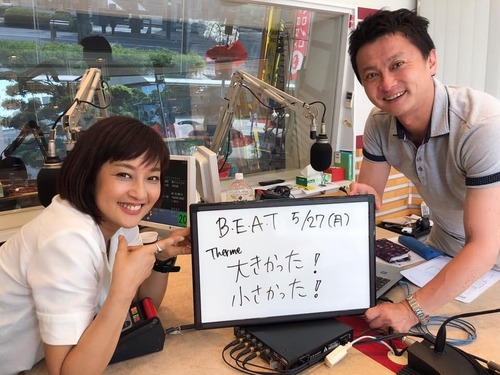 B.E.A.T 5/27(月)
Therme
大きかった!
小さかった!!